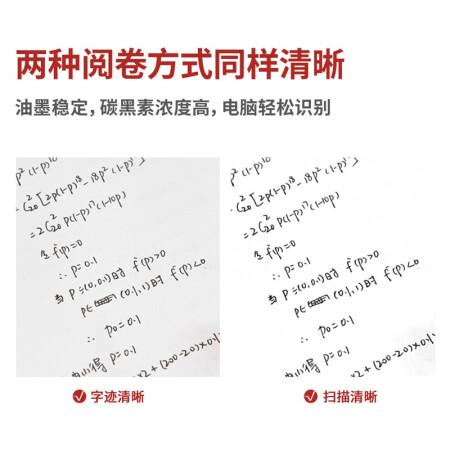 两种阅卷方式同样清晰
油墨稳定，碳黑素浓度高，电脑轻松识别
p²(1-p)¹⁸
∴ C²₂₀[2p(1-p)¹⁸-18p²(1-p)¹⁷]
=2C²₂₀ p(1-p)¹⁷(1-10p)
令f'(p)=0
∴ p=0.1
当 p∈(0,0.1)时 f'(p)>0
p∈ (0.1,1)时 f'(p)<0
∴ p₀=0.1
得 p=0.1
×2+(200-20)×0.1
字迹清晰
p²(1-p)¹⁸
∴ C²₂₀[2p(1-p)¹⁸-18p²(1-p)¹⁷]
=2C²₂₀ p(1-p)¹⁷(1-10p)
令f'(p)=0
∴ p=0.1
当 p∈(0,0.1)时 f'(p)>0
p∈ (0.1,1)时 f'(p)<0
∴ p₀=0.1
得 p=0.1
×2+(200-20)×0.1
扫描清晰